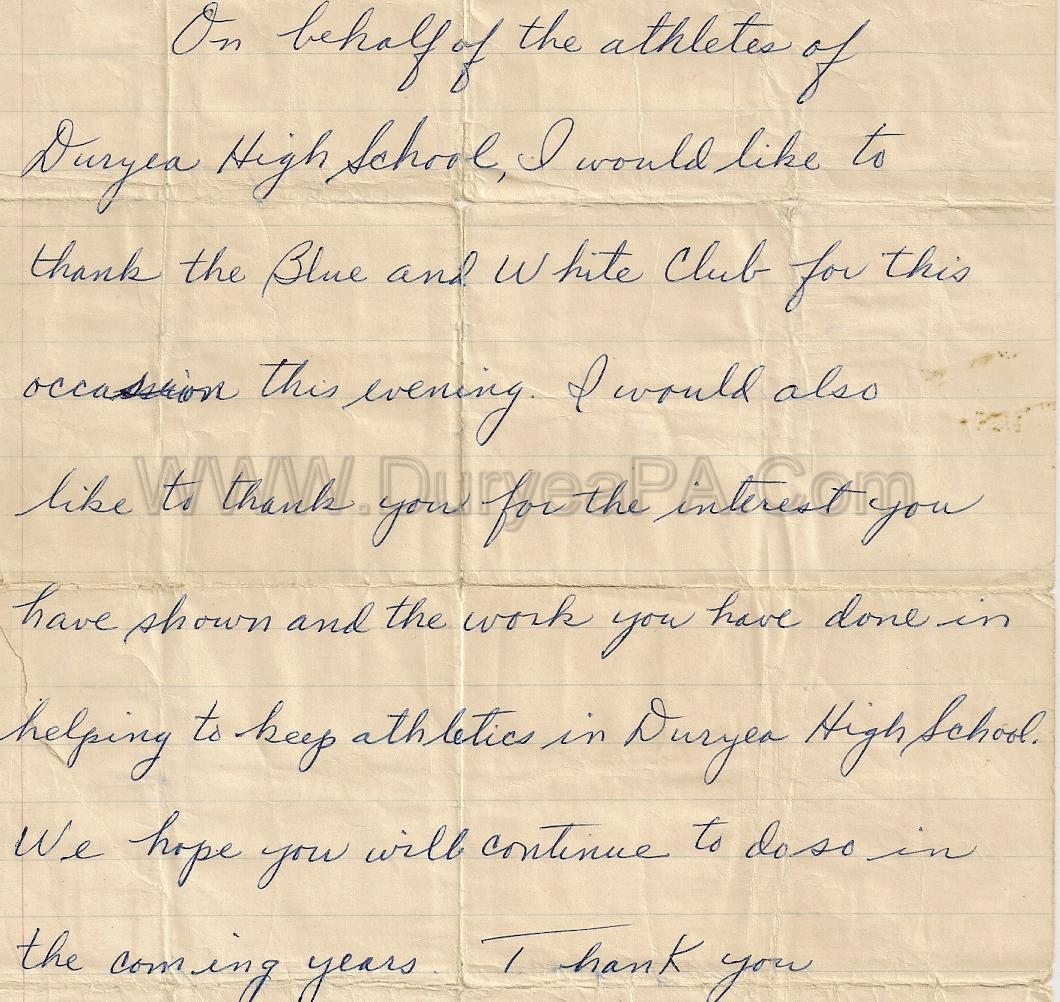 On behalf of the athletes of
Duryea High School, I would like to
thank the Blue and White Club for this
occassion this evening. I would also
WWW.DuryeaPA.Com
like to thank you for the interest you
have shown and the work you have done in
helping to keep athletics in Duryea High School.
We hope you will continue to do so in
the coming years. Thank you